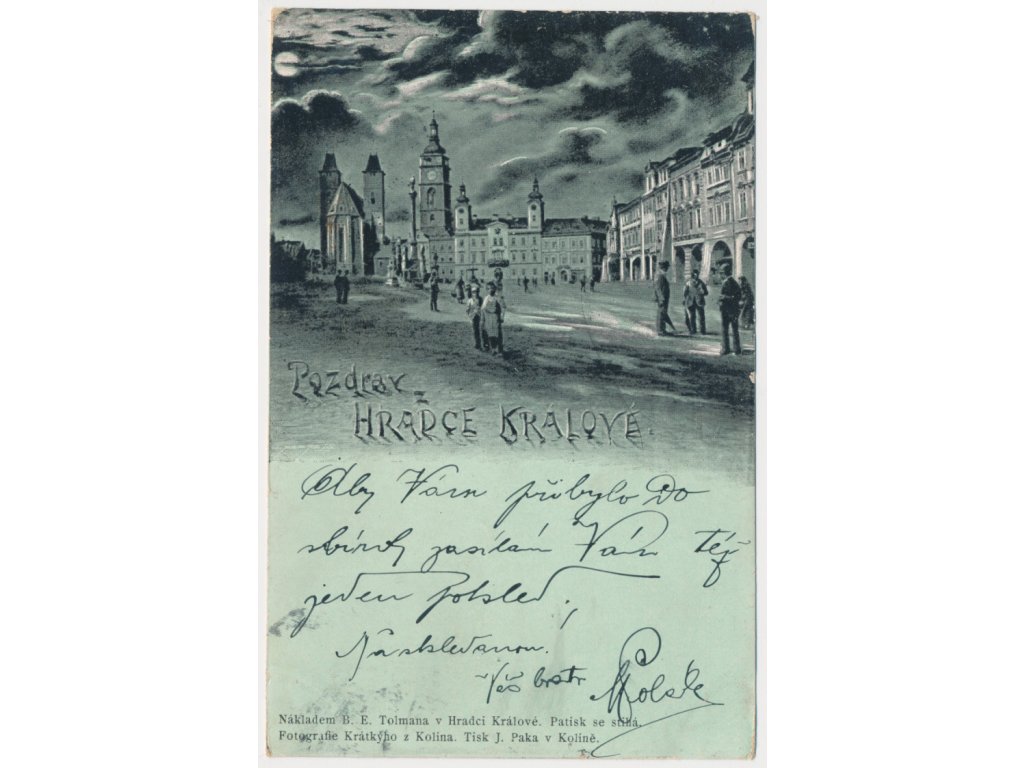 Pozdrav
z
HRADCE KRÁLOVÉ.
Aby Vám přibylo do
sbírky zasílám Vám též
jeden pohled,
Na shledanou!
Váš bratr
Nákladem B. E. Tolmana v Hradci Králové. Patisk se stíhá.
Fotografie Krátkýho z Kolína. Tisk J. Paka v Kolíně.